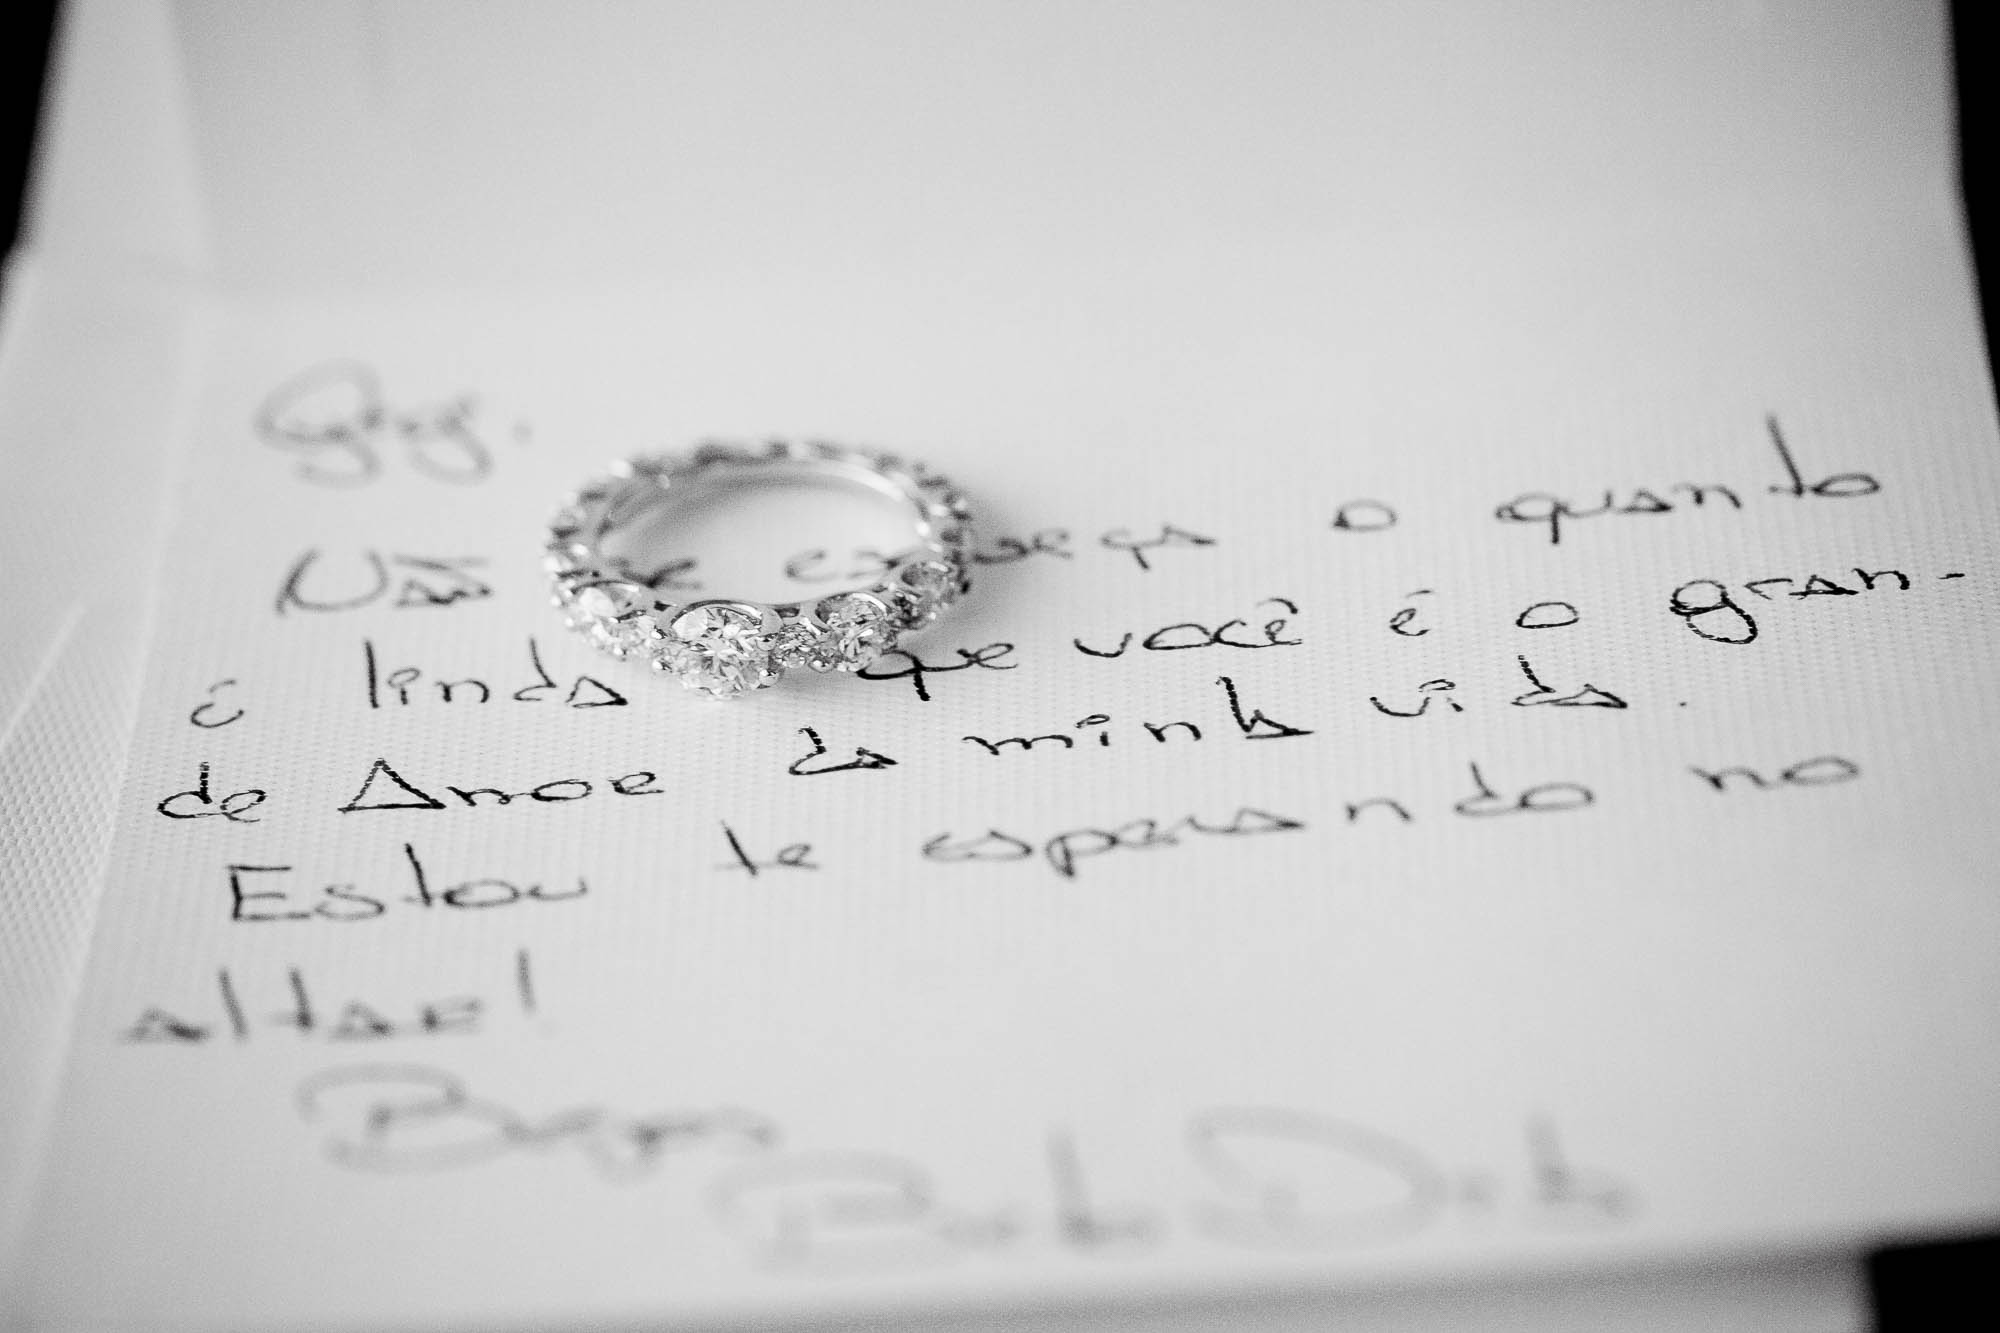 Não se esqueça o quanto
é linda que você é o gran-
de Amor da minha vida.
Estou te esperando no
altar!